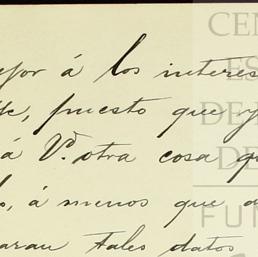 jor á los interes
puesto que y
á Vd. otra cosa qu
s, á menos que d
aran tales datos
CEN
ES
DE
DE
FUN